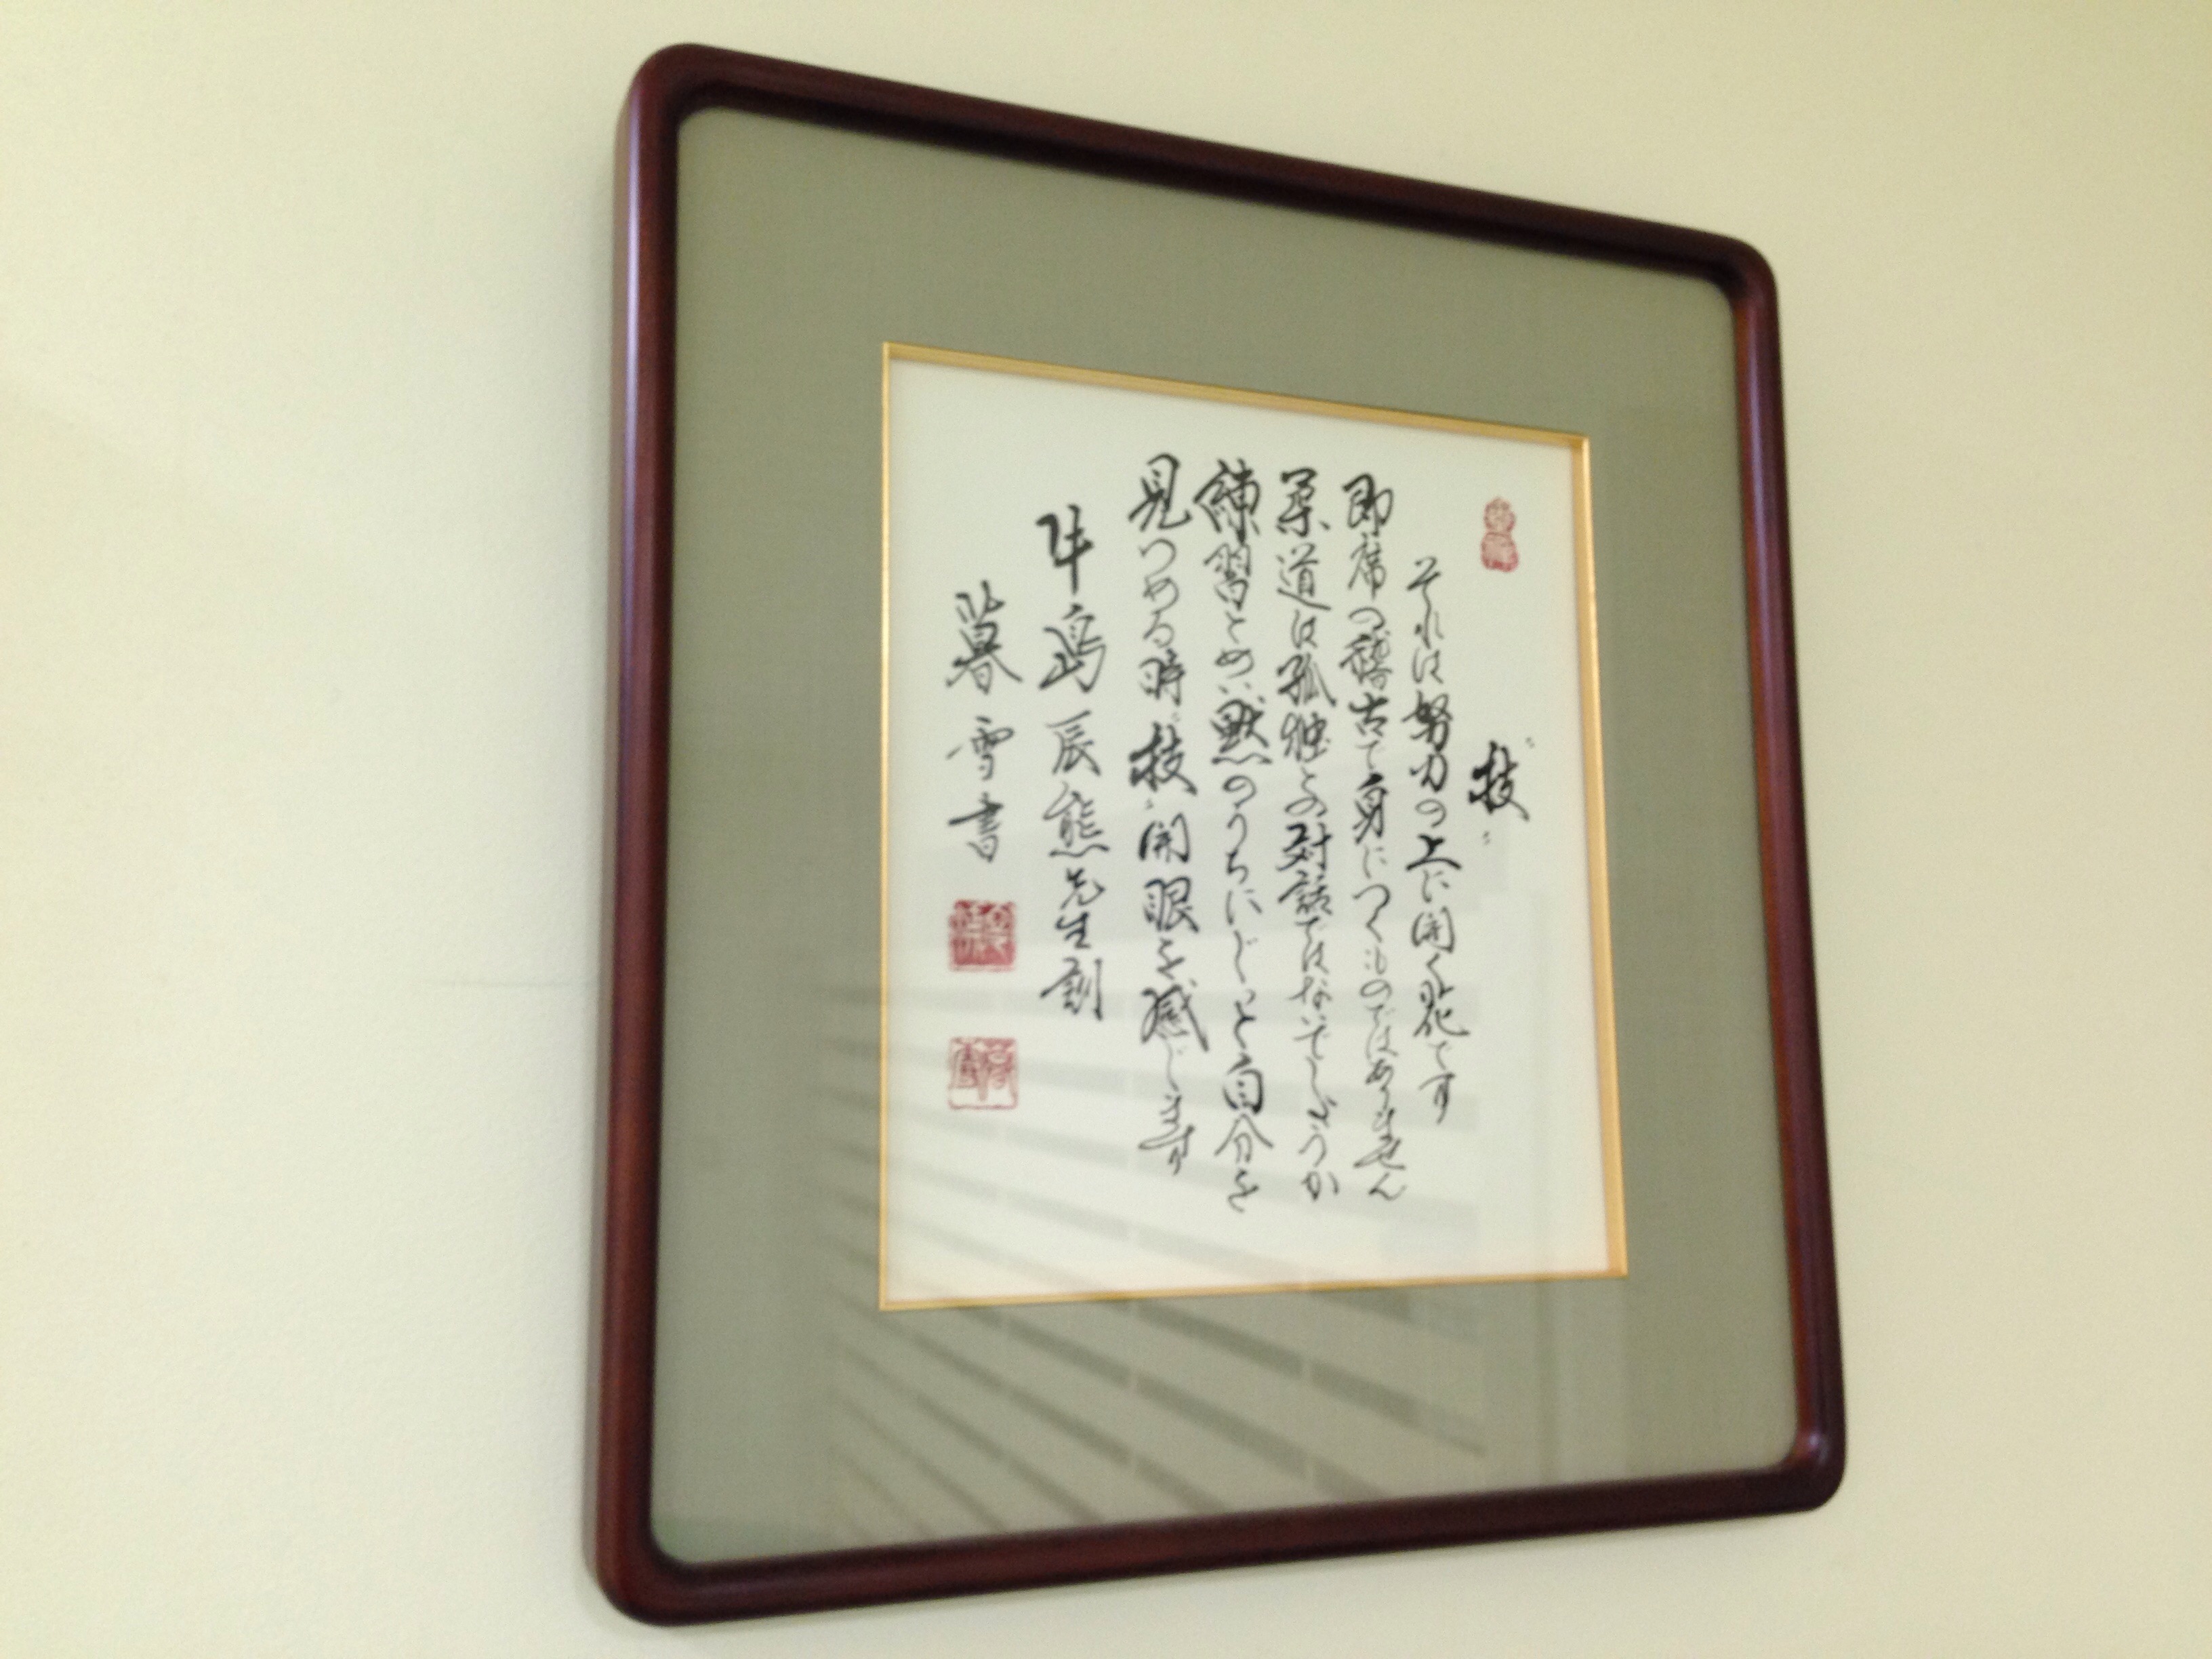 〝技〟
それは努力の上に開く花です
即席の稽古で身につくものではありません
柔道は孤独との対話ではないでしょうか
練習をつみ黙のうちにじっと自分を
見つめる時〝技〟開眼を感じます
牛島辰熊先生訓
暮雪書